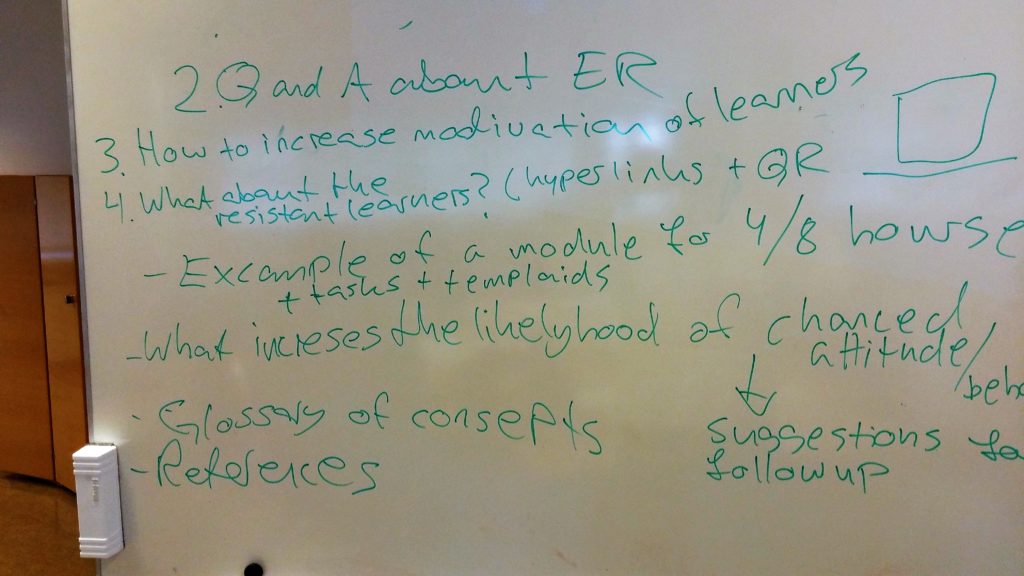 2. Q and A about ER
3. How to increase modivation of learners
4. What about the
resistent learners? (hyperlinks + QR
- Excample of a module for 4/8 howse
+ tasks + templaids
- What increses the likelyhood of chanced
attitude/
beha
suggestions fo
followup
- Glossary of consepts
- References